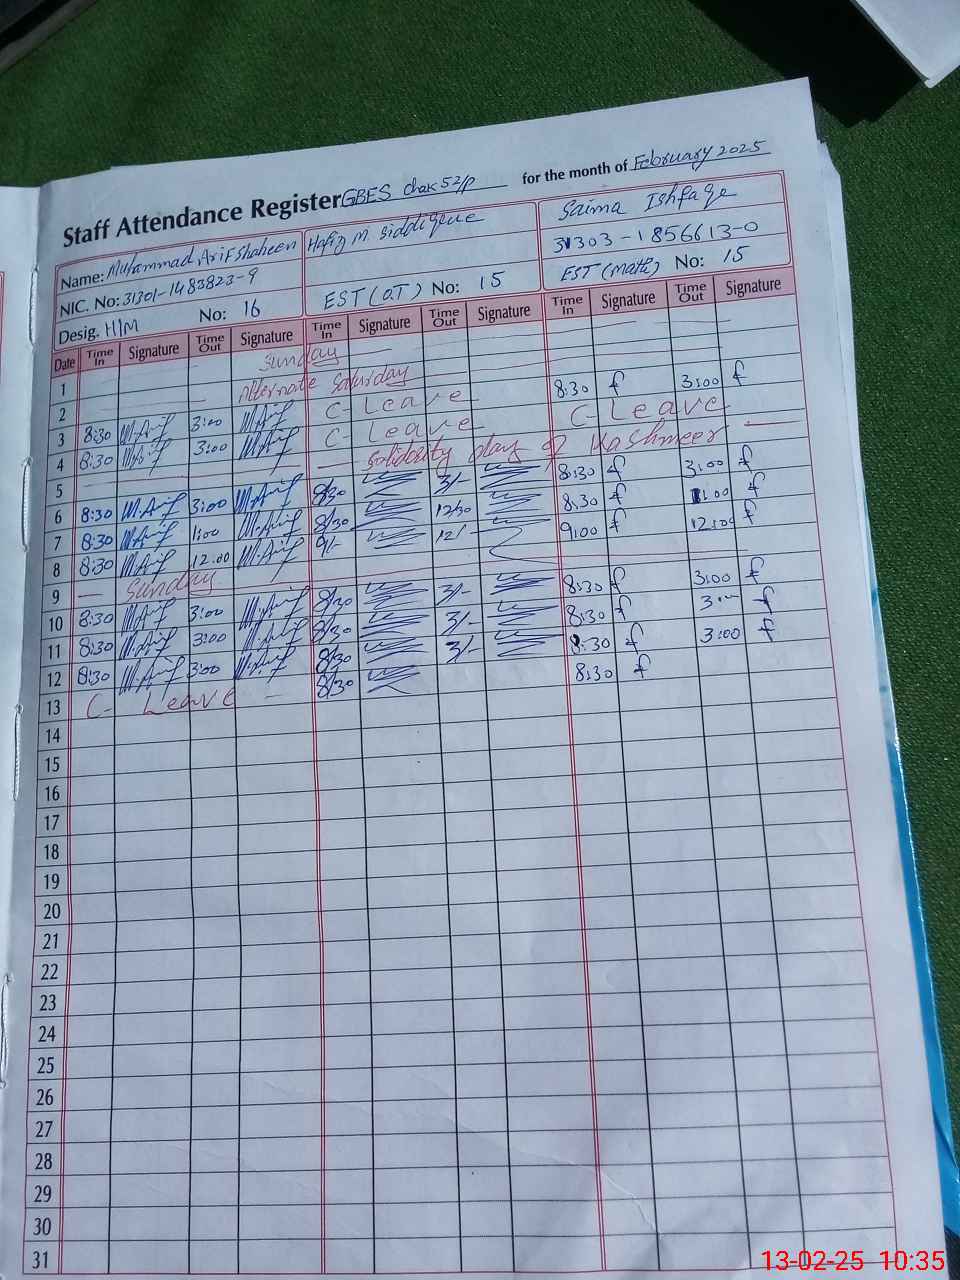 Staff Attendance Register GBES chak 52/P for the month of February 2025
Name: Muhammad Arif Shaheen Hafiz M. Siddique Saima Ishfaqe
NIC. No: 31301-1483823-9 31303-1856613-0
Desig. H/M No: 16 EST (O.T) No: 15 EST (math) No: 15
Date Time In Signature Time Out Signature Time In Signature Time Out Signature Time In Signature Time Out Signature
1 Alternate Saturday
2 Sunday
3 8:30 M.Arif 3:00 M.Arif C- Leave 8:30 3:00
4 8:30 M.Arif 3:00 M.Arif C- Leave C- Leave
5 Solidarity day of Kashmeer
6 8:30 M.Arif 3:00 M.Arif 8/30 3/- 8:30 3:00
7 8:30 M.Arif 1:00 M.Arif 8/30 12/30 8:30 1:00
8 8:30 M.Arif 12:00 M.Arif 9/- 12/- 9:00 12:00
9 Sunday
10 8:30 M.Arif 3:00 M.Arif 8/30 3/- 8:30 3:00
11 8:30 M.Arif 3:00 M.Arif 8/30 3/- 8:30 3:00
12 8:30 M.Arif 3:00 M.Arif 8/30 3/- 8:30 3:00
13 C- Leave 8/30 8:30
14
15
16
17
18
19
20
21
22
23
24
25
26
27
28
29
30
31
13-02-25 10:35